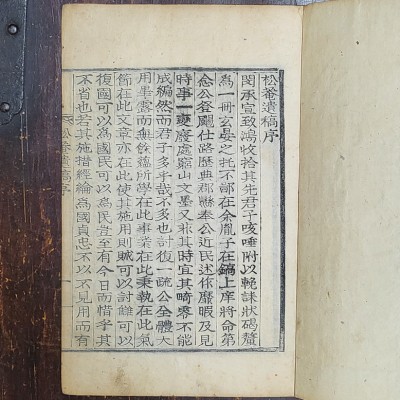 松菴遺稿序
閔承宣致鴻收拾其先君子咳唾附以輓誄狀碣釐
爲一冊玄晏之托不鄙在余胤子在鎬上庠將命第
念公登颺仕路歷典郡縣奉公近民靡暇及見
時事一變廢處窮山文墨又非其時宜其畸零不能
成編然而君子多乎哉不多也討復一疏公全體大
用畢露而無餘蘊所學在此事業在此秉執在此氣
節在此文章亦在此使其施用則賊可以討讎可以
復國可以爲國民可以爲民豈至有今日而惜乎其
不省也若其施措經綸爲國貞忠不以不見用而有
松菴遺稿序